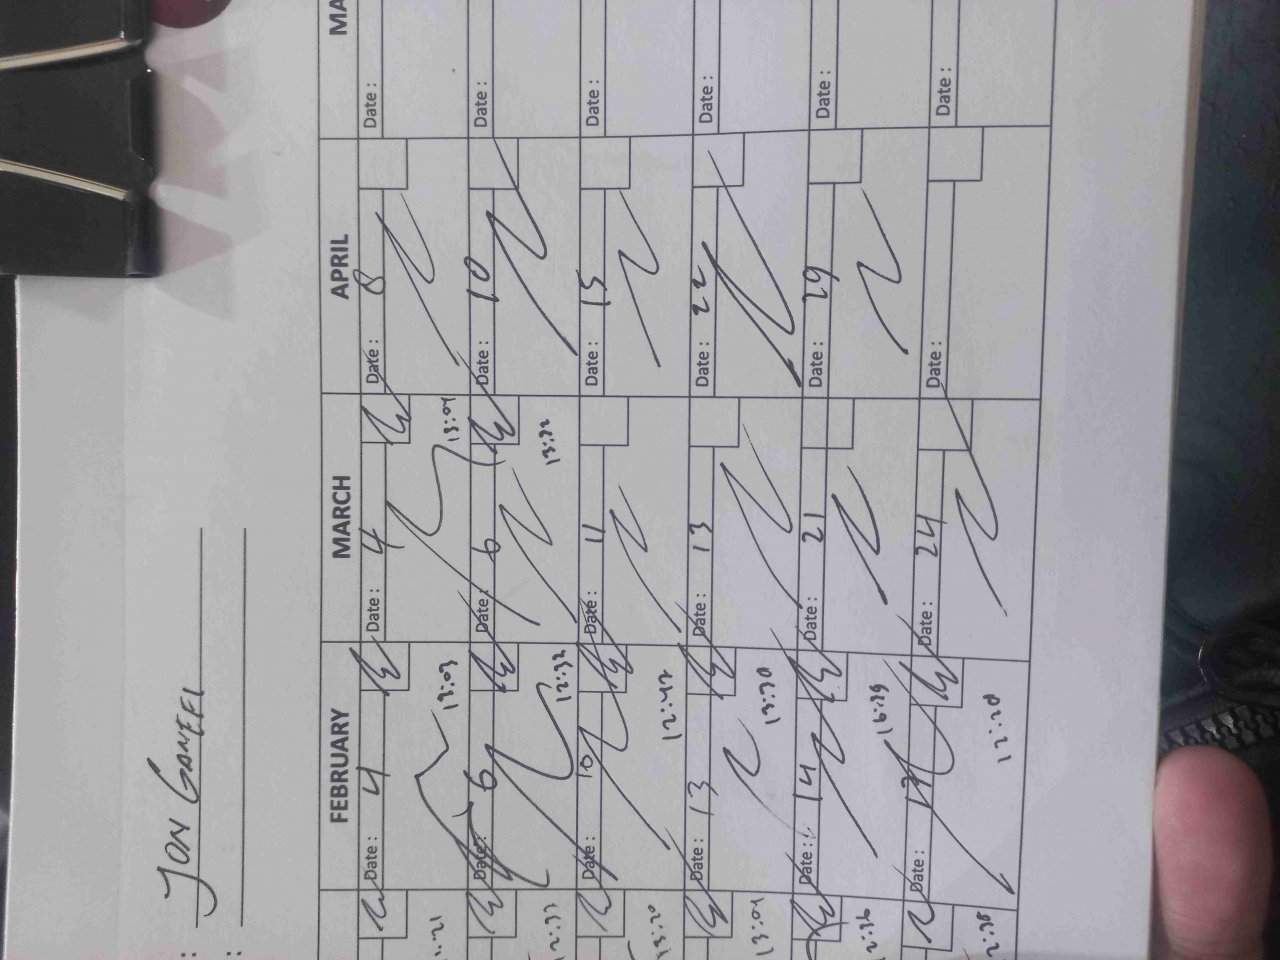 :
JON
:
FEBRUARY MARCH APRIL MA
Date : 4 Date : 4 Date : 8 Date :
:21 13:03 13:04
Date : 6 Date : 6 Date : 10 Date :
2:33 12:32 13:32
Date : 10 Date : 11 Date : 15 Date :
13:20 12:42
Date : 13 Date : 13 Date : 22 Date :
13:04 13:30
Date : 14 Date : 21 Date : 29 Date :
2:36 16:39
Date : 17 Date : 24 Date : Date :
2:38 12:28